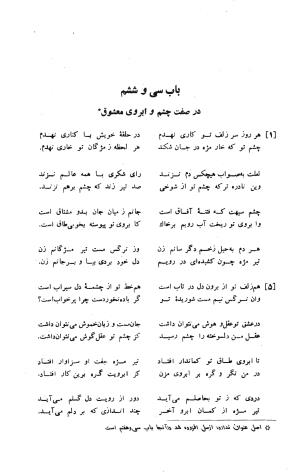 باب سی و ششم
در صفت چشم و ابروی معشوق*
[۱] هر روز سر زلف تو کاری نهدم در حلقهٔ خویش با کناری نهدم
چشم تو که خار مژه در جان شکند هر لحظه ز مژگان تو خاری نهدم
لعلت بصواب هیچکس دم نزند رای شکری با همه عالم نزند
وین نادره تر که چشم تو از شوخی صد تیر زند که چشم برهم نزند
چشم سیهت که فتنهٔ آفاق است جانم ز میان جان بدو مشتاق است
وا بروی تو ریخت آب رویم برخاک کابروی تو پیوسته بخوبی طاق است
هر دم به حیل زخم دگر سانم زن وز نرگس مست تیر مژگانم زن
تیر مژه چون کشیده‌ای در رویم دل خود بردی بیا و برجانم زن
[۵] هم زلف تو از برون دل در تاب است هم خط تو از چشمهٔ دل سیراب است
وان نرگس نیم مست شوریدهٔ تو گر باده نخوردست چرا پرخواب است؟
در عشق تو عقل و هوش می‌نتوان داشت جان مست و زبان خموش می‌نتوان داشت
عقل من دلسوخته را چشم رسید کز چشم تو عقل گوش می‌نتوان داشت
تا ابروی طاق تو کماندار افتاد تیر مژه جفت او سزاوار افتاد
در من نگر و گره بر ابروی مزن کز ابرویت گره برین کار افتاد
دردی که ز تو بحاصلم می‌آید
تیر مژه از کمان ابرو آخر چند اندازی که بر دلم می‌آید
* اصل عنوان ندارد، ازمل افزوده شد و در آنجا باب سی و هفتم است